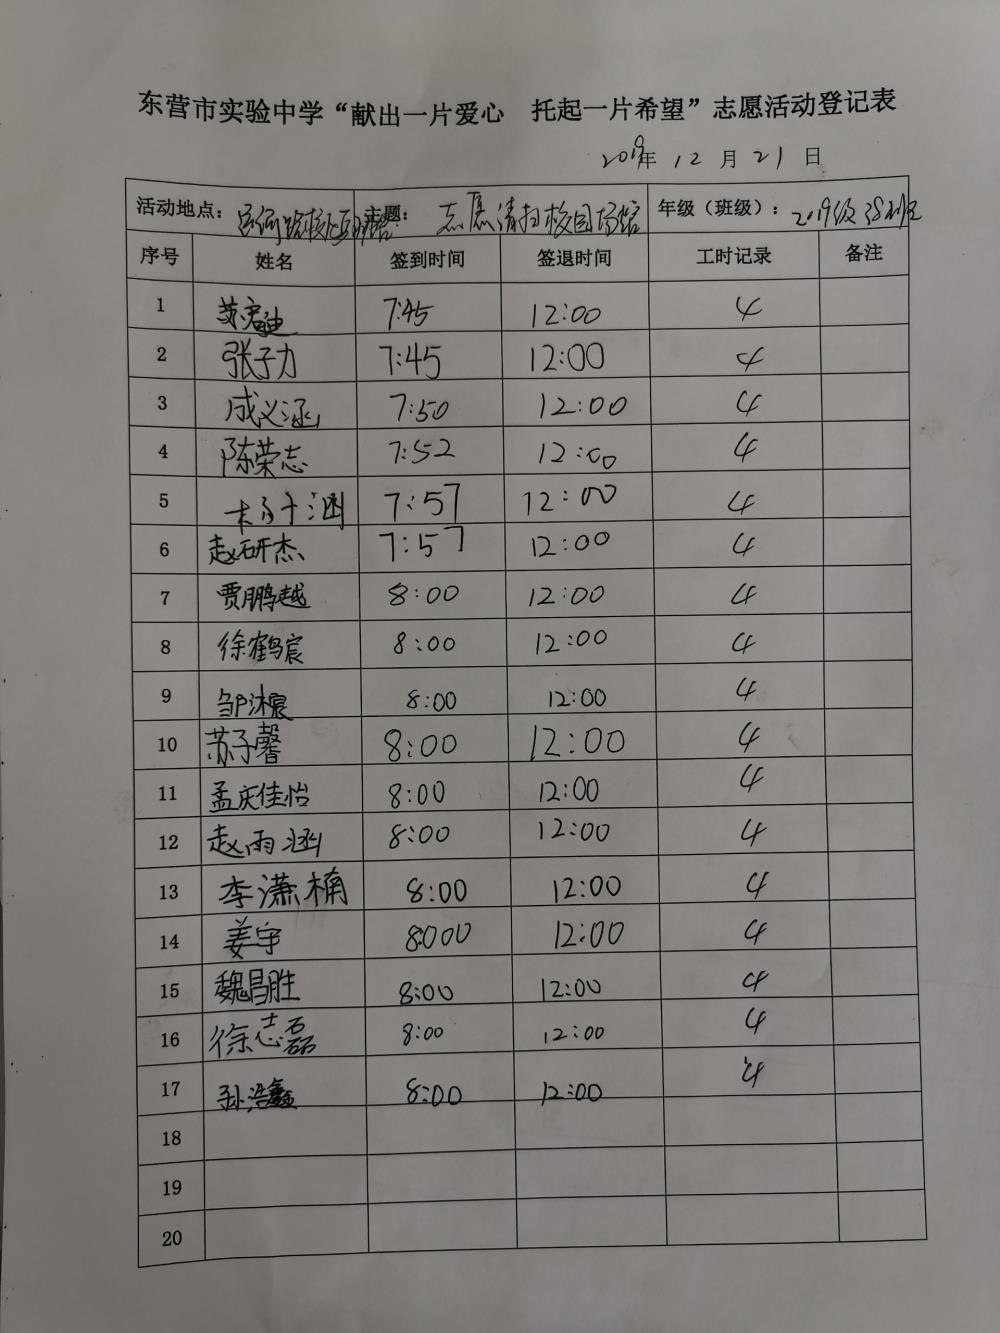 东营市实验中学“献出一片爱心 托起一片希望”志愿活动登记表
2019年 12 月 21 日
活动地点： 主题：志愿清扫校园场馆 年级（班级）：2019级
序号 姓名 签到时间 签退时间 工时记录 备注
1 7:45 12:00 4
2 张子力 7:45 12:00 4
3 成义涵 7:50 12:00 4
4 陈荣志 7:52 12:00 4
5 7:57 12:00 4
6 赵研杰 7:57 12:00 4
7 贾鹏越 8:00 12:00 4
8 徐鹤宸 8:00 12:00 4
9 邹沐宸 8:00 12:00 4
10 苏子馨 8:00 12:00 4
11 孟庆佳怡 8:00 12:00 4
12 赵雨涵 8:00 12:00 4
13 李潇楠 8:00 12:00 4
14 姜宇 8:000 12:00 4
15 魏昌胜 8:00 12:00 4
16 徐志磊 8:00 12:00 4
17 孙浩鑫 8:00 12:00 4
18
19
20